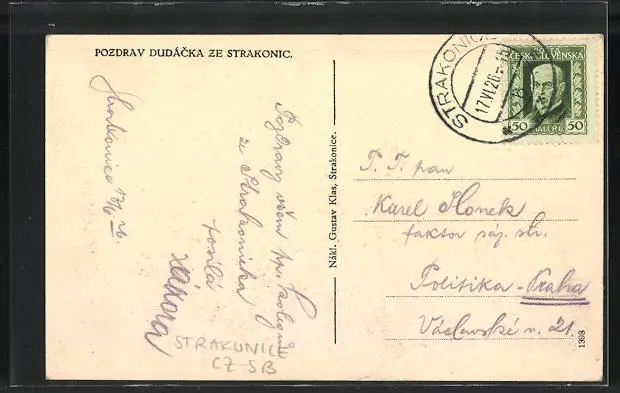 POZDRAV DUDÁČKA ZE STRAKONIC.
Strakonice 17/6 26.
Pozdravy všem pp. kolegům
ze Strakonicka
posílá
STRAKONICE
CZ-SB
Nákl. Gustav Klas, Strakonice.
STRAKONICE
17.VI.26
POŠTA
ČESKOSLOVENSKÁ
50 HALÉŘŮ 50
P. T. pan
Karel Honek
faktor sáz. str.
Politika - Praha
Václavské n. 21.
1398